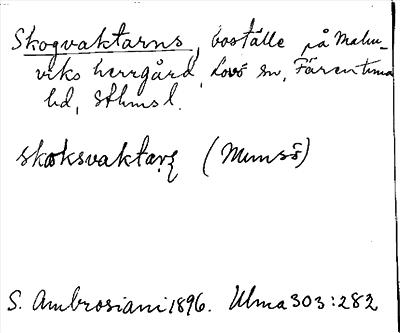 Skogvaktarns, boställe på Malm-
viks herrgård, Lovö sn, Färentuna
hd, Sthmsl.
skoksvaktarę (Munsö)
S. Ambrosiani 1896. Ulma 303:282